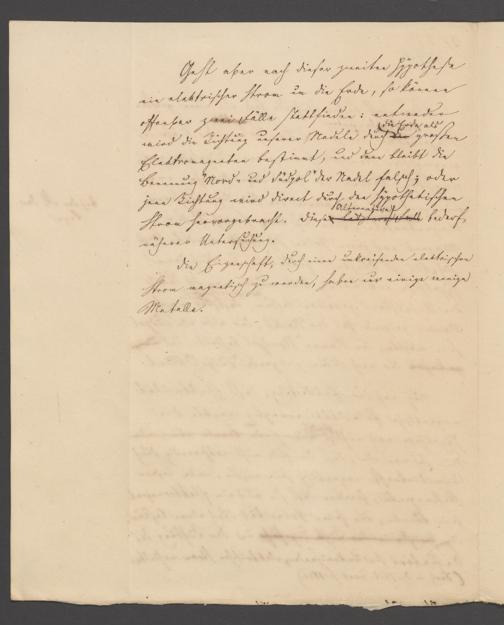 Geht aber nach dieser zweiten Hypothese
ein elektrischer Strom um die Erde, so können
offenbar zwei Fälle stattfinden: entweder
wird die Richtung unserer Nadeln durch die Erde als großen
Elektromagneten bestimmt, und dann bleibt die
Benennung Nord- und Südpol der Nadel falsch; oder
jene Richtung wird direct durch den hypothetischen
Strom hervorgebracht. Diese Alternative bedarf
näherer Untersuchung.
Die Eigenschaft, durch einen umkreisenden elektrischen
Strom magnetisch zu werden, haben nur einige wenige
Metalle.